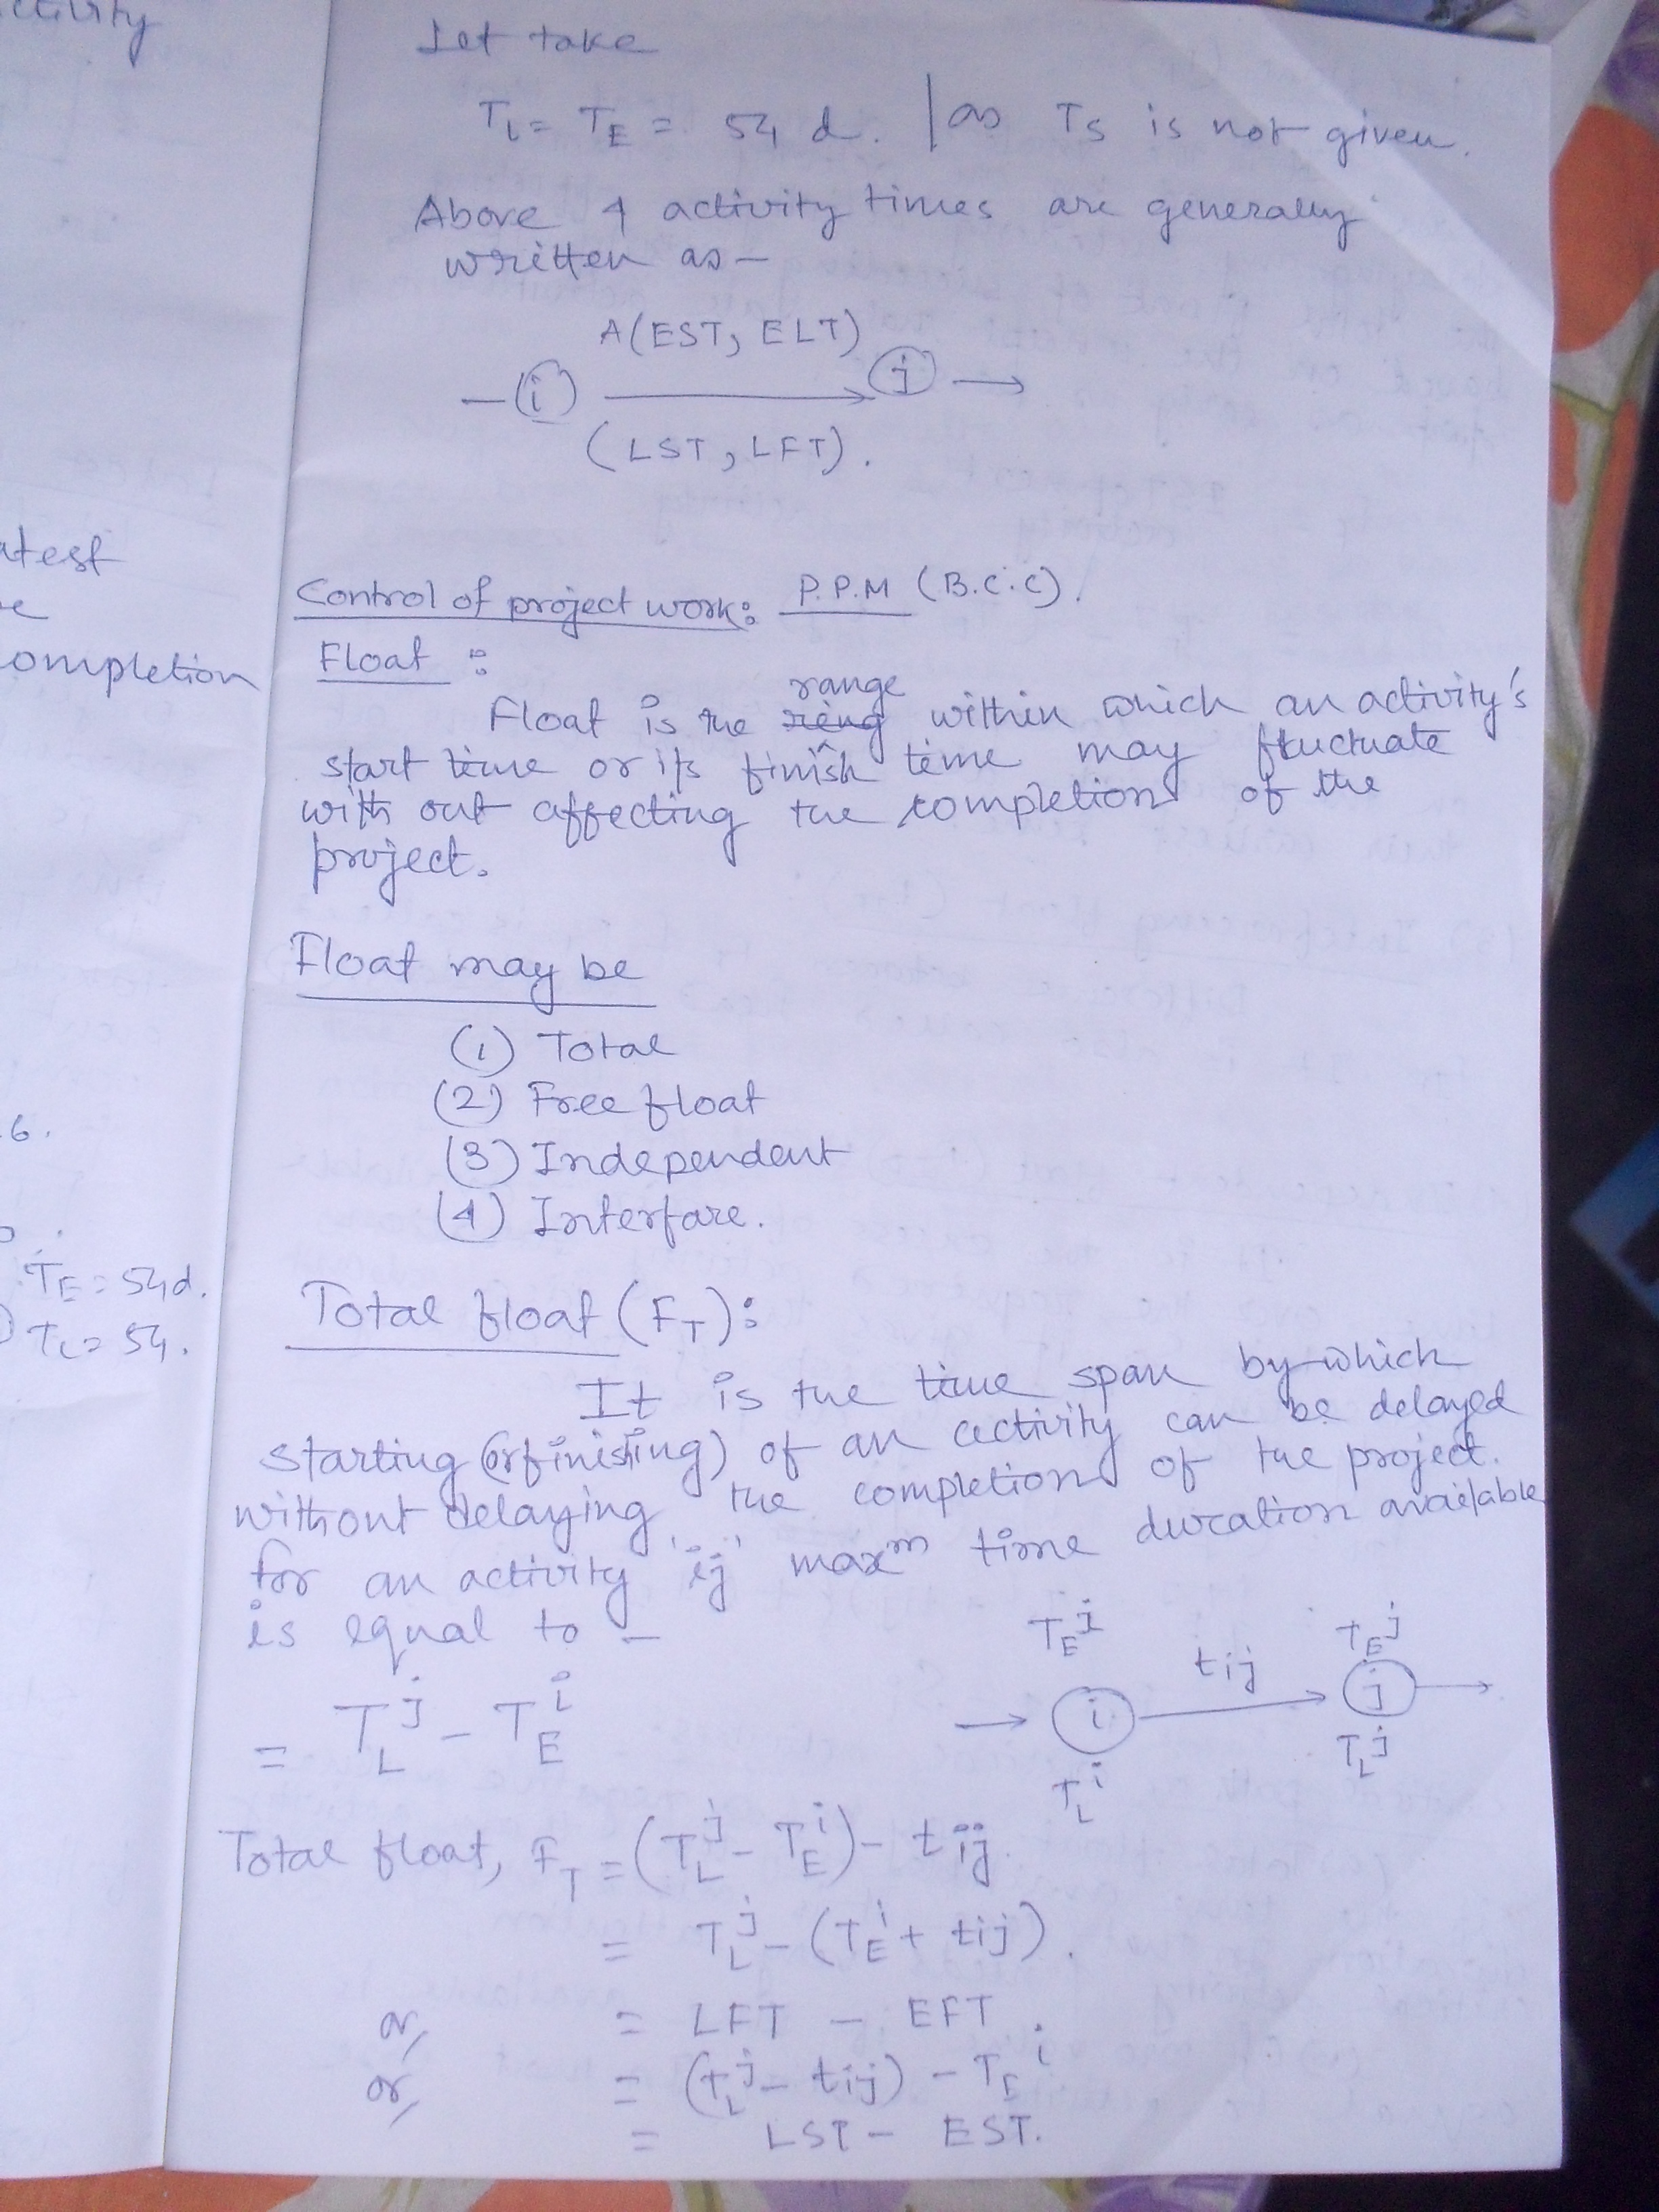 ctivity
atest
e
ompletion
6.
TE = 54d.
TL = 54.
Let take
TL = TE = 54 d. | as TS is not given.
Above 4 activity times are generally
written as –
A(EST, ELT)
i j
(LST, LFT).
Control of project work: P.P.M (B.C.C).
Float :
range
Float is the within which an activity's
start time or its finish time may fluctuate
with out affecting the completion of the
project.
Float may be
(1) Total
(2) Free float
(3) Independent
(4) Interfare.
Total float (FT):
It is the time span by which
starting (or finishing) of an activity can be delayed
without delaying the completion of the project.
for an activity 'ij' maxm time duration available
is equal to –
TE^j tij TE^j
i j
TL^i TL^j
= TL^j – TE^i
Total float, FT = (TL^j – TE^i) – tij.
= TL^j – (TE^i + tij).
or, = LFT – EFT.
or, = (TL^j – tij) – TE^i
= LST – EST.